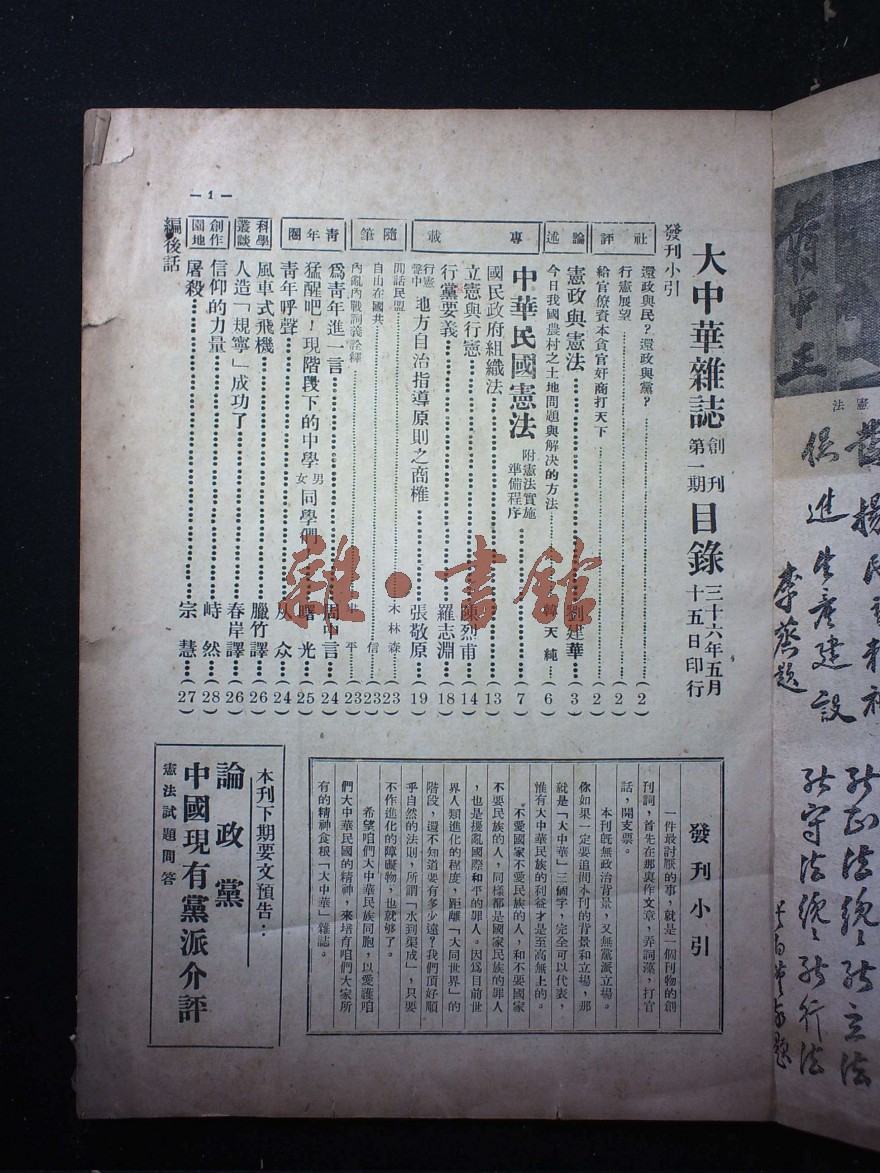 大中華雜誌 創刊第一期 目錄 三十六年五月十五日印行
發刊小引
社評
還政與民?還政與黨?(2)
行憲展望(2)
給官僚資本貪官奸商打天下(2)
論述
憲政與憲法 劉建華(3)
今日我國農村之土地問題與解決的方法 韓天純(6)
專載
中華民國憲法 附憲法實施準備程序(7)
國民政府組織法(13)
立憲與行憲 陳烈甫(14)
行黨要義 羅志淵(18)
行憲聲中 地方自治指導原則之商榷 張敬原(19)
隨筆
閒話民盟 木林森(23)
自由在國共 信(23)
內亂內戰詞義詮釋 平(23)
青年圈
為青年進一言 周中言(24)
猛醒吧!現階段下的中學男女同學們 曙光(25)
青年呼聲 从众(24)
科學叢談
風車式飛機 臘竹譯(26)
人造「規寧」成功了 春岸譯(26)
創作園地
信仰的力量 峙然(28)
屠殺 宗慧(27)
編後話
—1—
發刊小引
一件最討厭的事,就是一個刊物的創
刊詞,首先在那裏作文章,弄詞藻,打官
話,開支票。
本刊旣無政治背景,又無黨派立場。
你如果一定要追問本刊的背景和立場,那
就是「大中華」三個字,完全可以代表,
惟有大中華民族的利益才是至高無上的。
不愛國家不愛民族的人,和不要國家
不要民族的人,同樣都是國家民族的罪人
,也是擾亂國際和平的罪人。因爲目前世
界人類進化的程度,距離「大同世界」的
階段,還不知道要有多少遠?我們頂好順
乎自然的法則,所謂「水到渠成」,只要
不作進化的障礙物,也就够了。
希望咱們大中華民族同胞,以愛護咱
們大中華民國的精神,來培育咱們大家所
有的精神食粮「大中華」雜誌。
本刊下期要文預告:
論政黨
中國現有黨派介評
憲法試題問答
雜·書館
法憲
進生產建設
李蒸題
能守法纔能行法
能立法